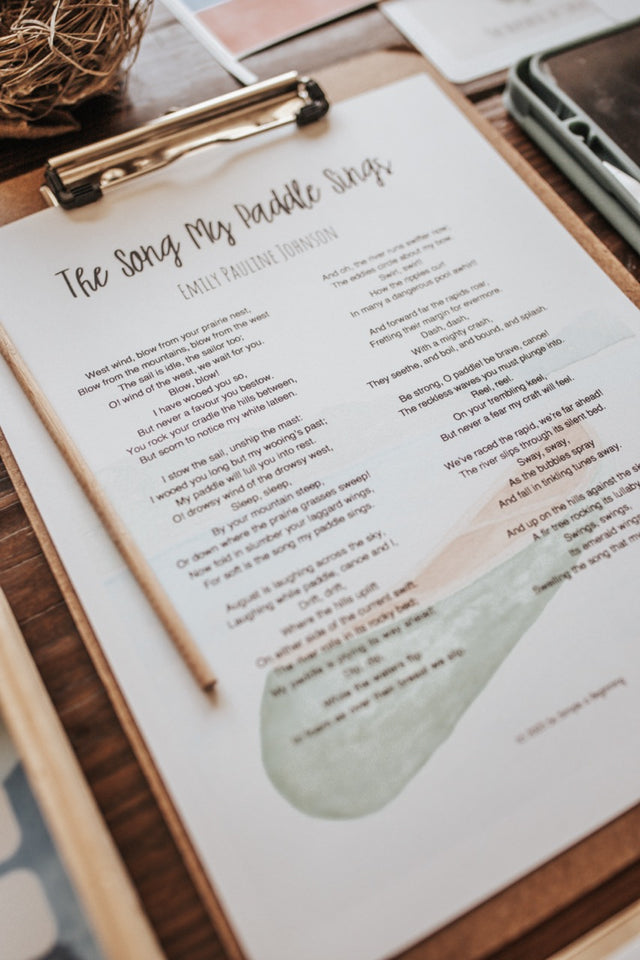 The Song My Paddle Sings
Emily Pauline Johnson
West wind, blow from your prairie nest,
Blow from the mountains, blow from the west
The sail is idle, the sailor too;
O! wind of the west, we wait for you.
Blow, blow!
I have wooed you so,
But never a favour you bestow.
You rock your cradle the hills between,
But scorn to notice my white lateen.
I stow the sail, unship the mast:
I wooed you long but my wooing's past;
My paddle will lull you into rest.
O! drowsy wind of the drowsy west,
Sleep, sleep,
By your mountain steep,
Or down where the prairie grasses sweep!
Now fold in slumber your laggard wings,
For soft is the song my paddle sings.
August is laughing across the sky,
Laughing while paddle, canoe and I,
Drift, drift,
Where the hills uplift
On either side of the current swift.
The river rolls in its rocky bed;
My paddle is plying its way ahead;
Dip, dip,
While the waters flip
In foam as over their breast we slip.
And oh, the river runs swifter now;
The eddies circle about my bow.
Swirl, swirl!
How the ripples curl
In many a dangerous pool awhirl!
And forward far the rapids roar,
Fretting their margin for evermore.
Dash, dash,
With a mighty crash,
They seethe, and boil, and bound, and splash.
Be strong, O paddle! be brave, canoe!
The reckless waves you must plunge into.
Reel, reel.
On your trembling keel,
But never a fear my craft will feel.
We've raced the rapid, we're far ahead!
The river slips through its silent bed.
Sway, sway,
As the bubbles spray
And fall in tinkling tunes away.
And up on the hills against the
A fir tree rocking its lullaby
Swings, swings,
Its emerald
Swelling the song that